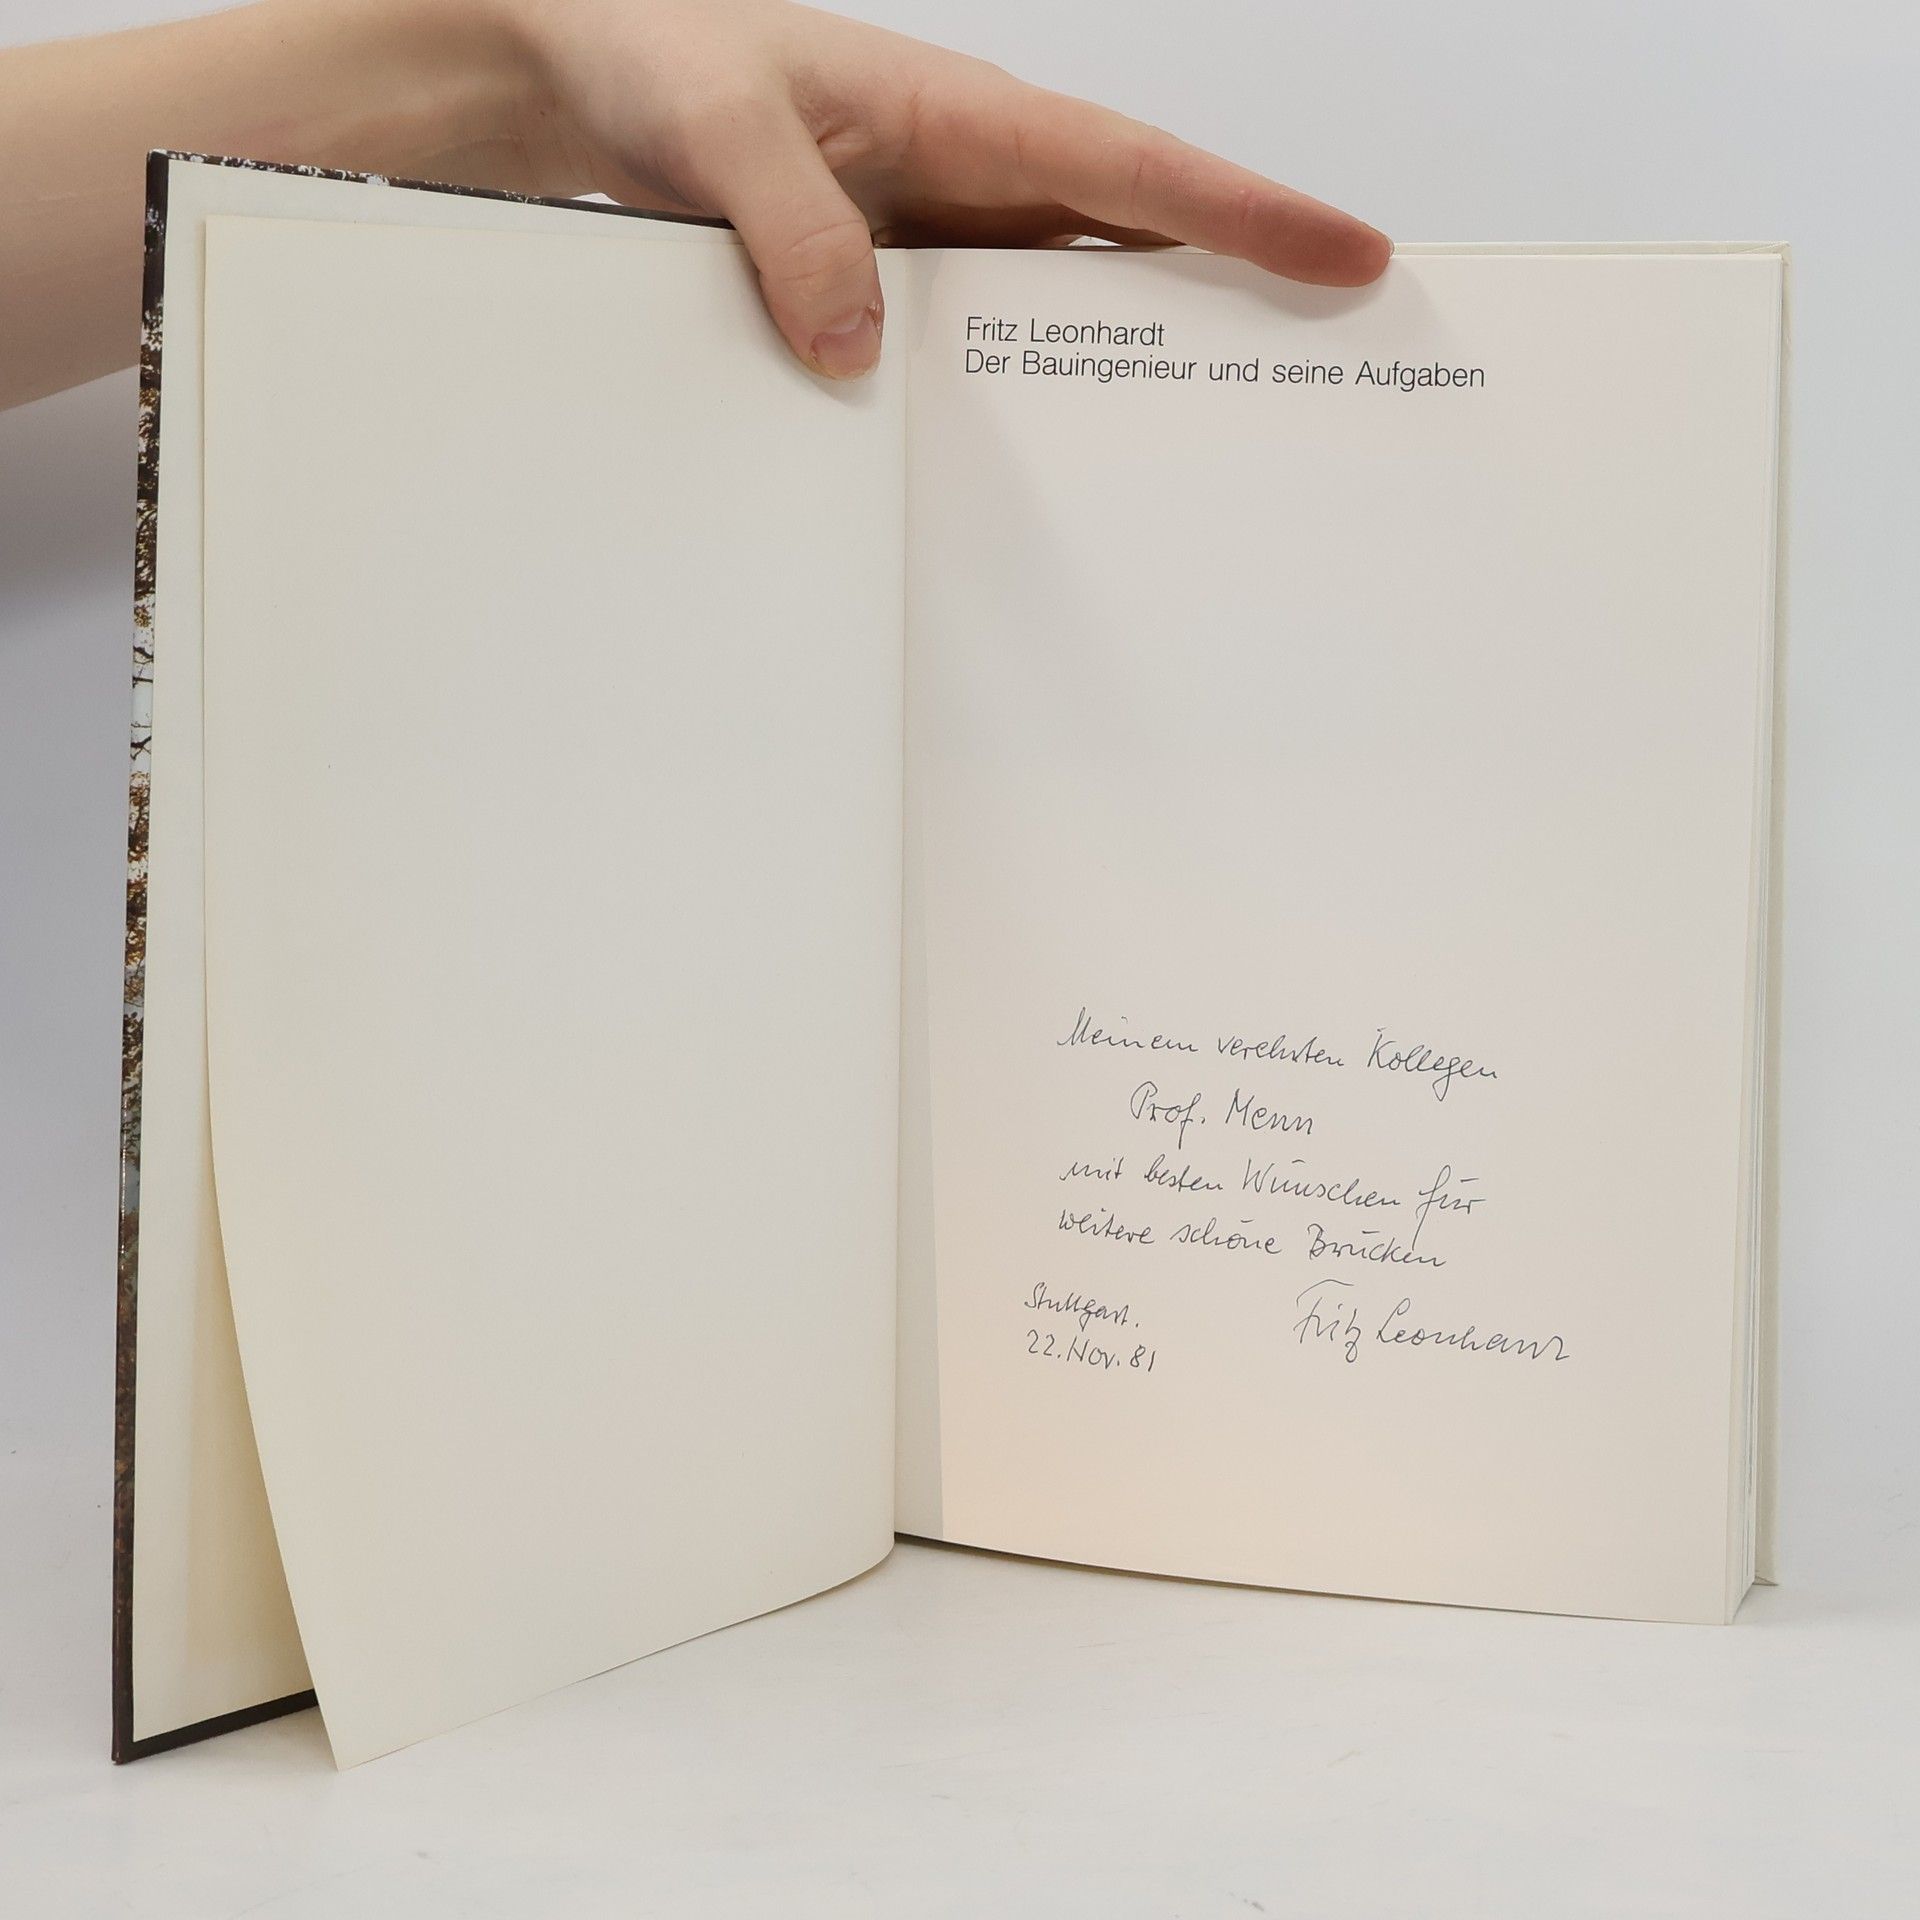 Fritz Leonhardt
Der Bauingenieur und seine Aufgaben
Meinem verehrten Kollegen
Prof. Menn
mit besten Wünschen für
weitere schöne Brücken
Stuttgart.
22. Nov. 81
Fritz Leonhardt